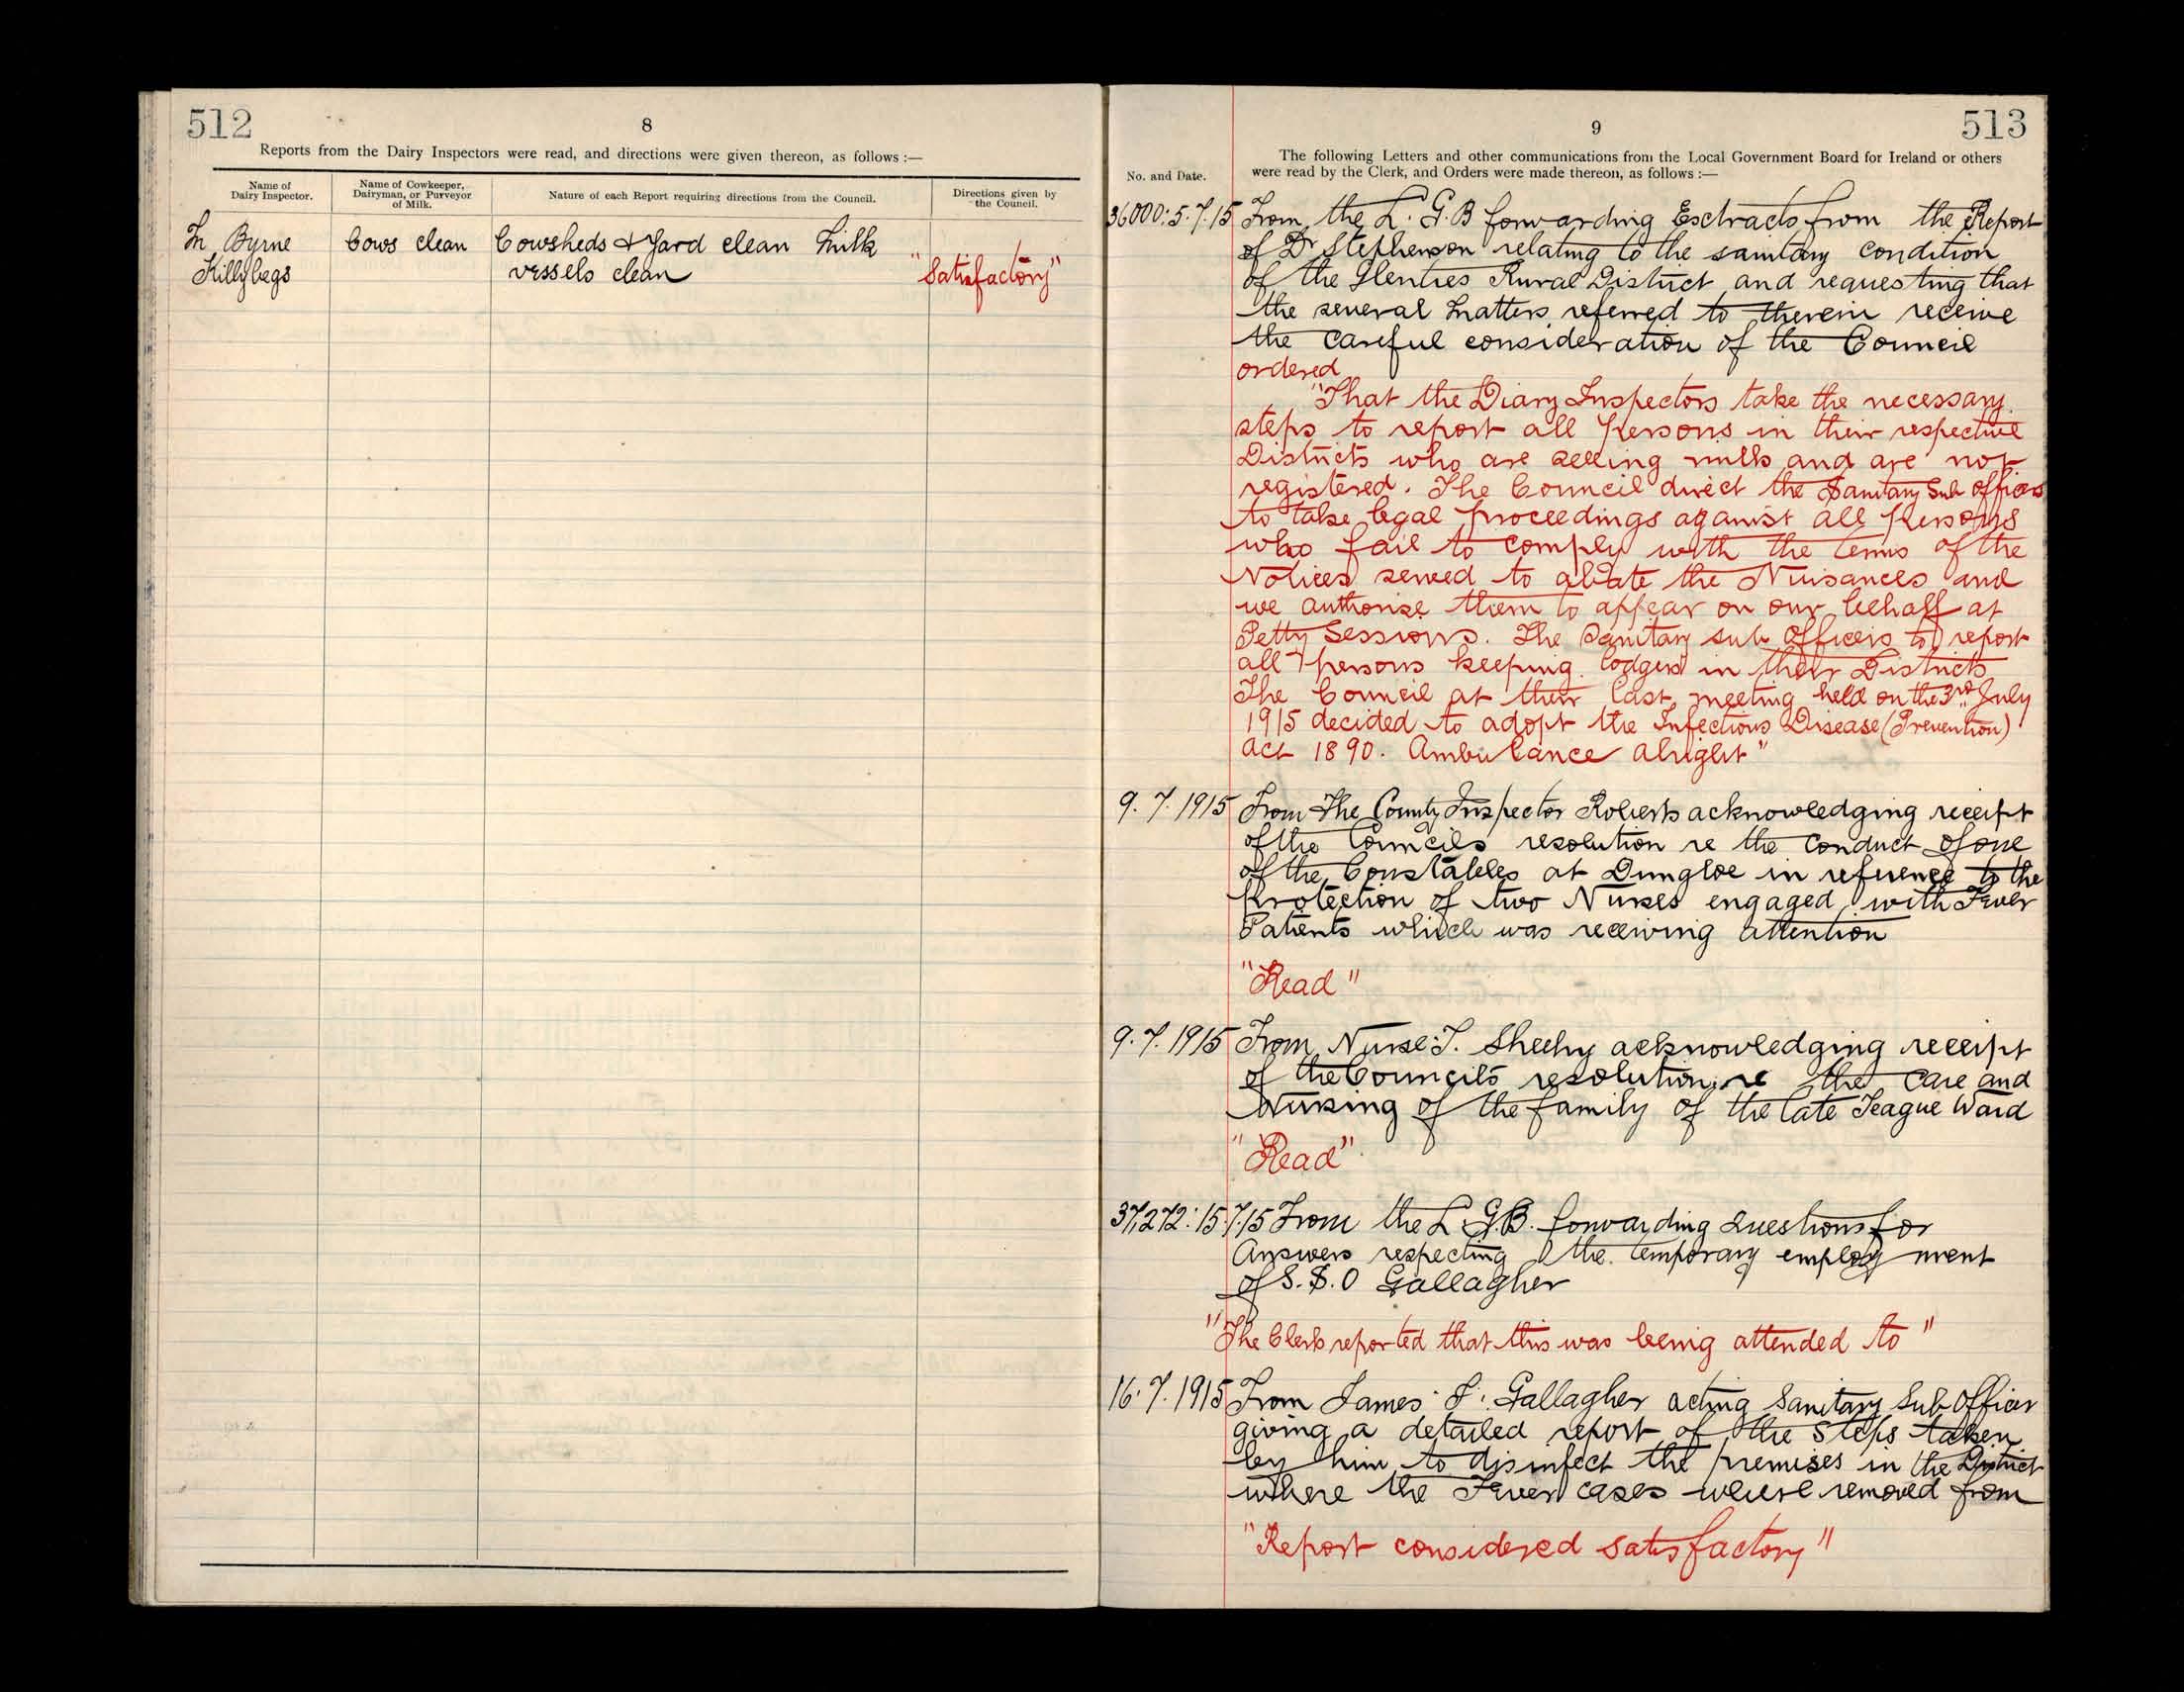 512
8
Reports from the Dairy Inspectors were read, and directions were given thereon, as follows :—
Name of Dairy Inspector.
Name of Cowkeeper, Dairyman, or Purveyor of Milk.
Nature of each Report requiring directions from the Council.
Directions given by the Council.
Byrne Cows clean Cowsheds & Yard clean Milk
Killybegs vessels clean "Satisfactory"
9
513
No. and Date.
The following Letters and other communications from the Local Government Board for Ireland or others
were read by the Clerk, and Orders were made thereon, as follows :—
36000: 5.7.15 From the L. G. B forwarding Extracts from the Report
of Dr Stephenson relating to the sanitary condition
of the Glenties Rural District and requesting that
the several matters referred to therein receive
the careful consideration of the Council
ordered
"That the Diary Inspectors take the necessary
steps to report all persons in their respective
Districts who are selling milk and are not
registered. The Council direct the Sanitary Sub officers
to take legal proceedings against all persons
who fail to comply with the terms of the
Notices served to abate the Nuisances and
we authorise them to appear on our behalf at
Petty Sessions. The Sanitary sub officers to report
all persons keeping lodgers in their Districts
The Council at their last meeting held on the 3rd July
1915 decided to adopt the Infectious Disease (Prevention)
Act 1890. Ambulance alright"
9. 7. 1915 From The County Inspector Roberts acknowledging receipt
of the Councils resolution re the conduct of one
of the Constables at Dungloe in reference to the
protection of two Nurses engaged with Fever
Patients which was receiving attention
"Read"
9. 7. 1915 From Nurse T. Sheehy acknowledging receipt
of the Councils resolution re the care and
Nursing of the family of the late Teague Ward
"Read"
37,272: 15.7.15 From the L. G. B. forwarding Questions for
Answers respecting the temporary employ ment
of S. S. O Gallagher
"The Clerk reported that this was being attended to"
16. 7. 1915 From James F. Gallagher acting Sanitary Sub Officer
giving a detailed report of the steps taken
by him to disinfect the premises in the District
where the Fever cases where removed from
"Report considered satisfactory"